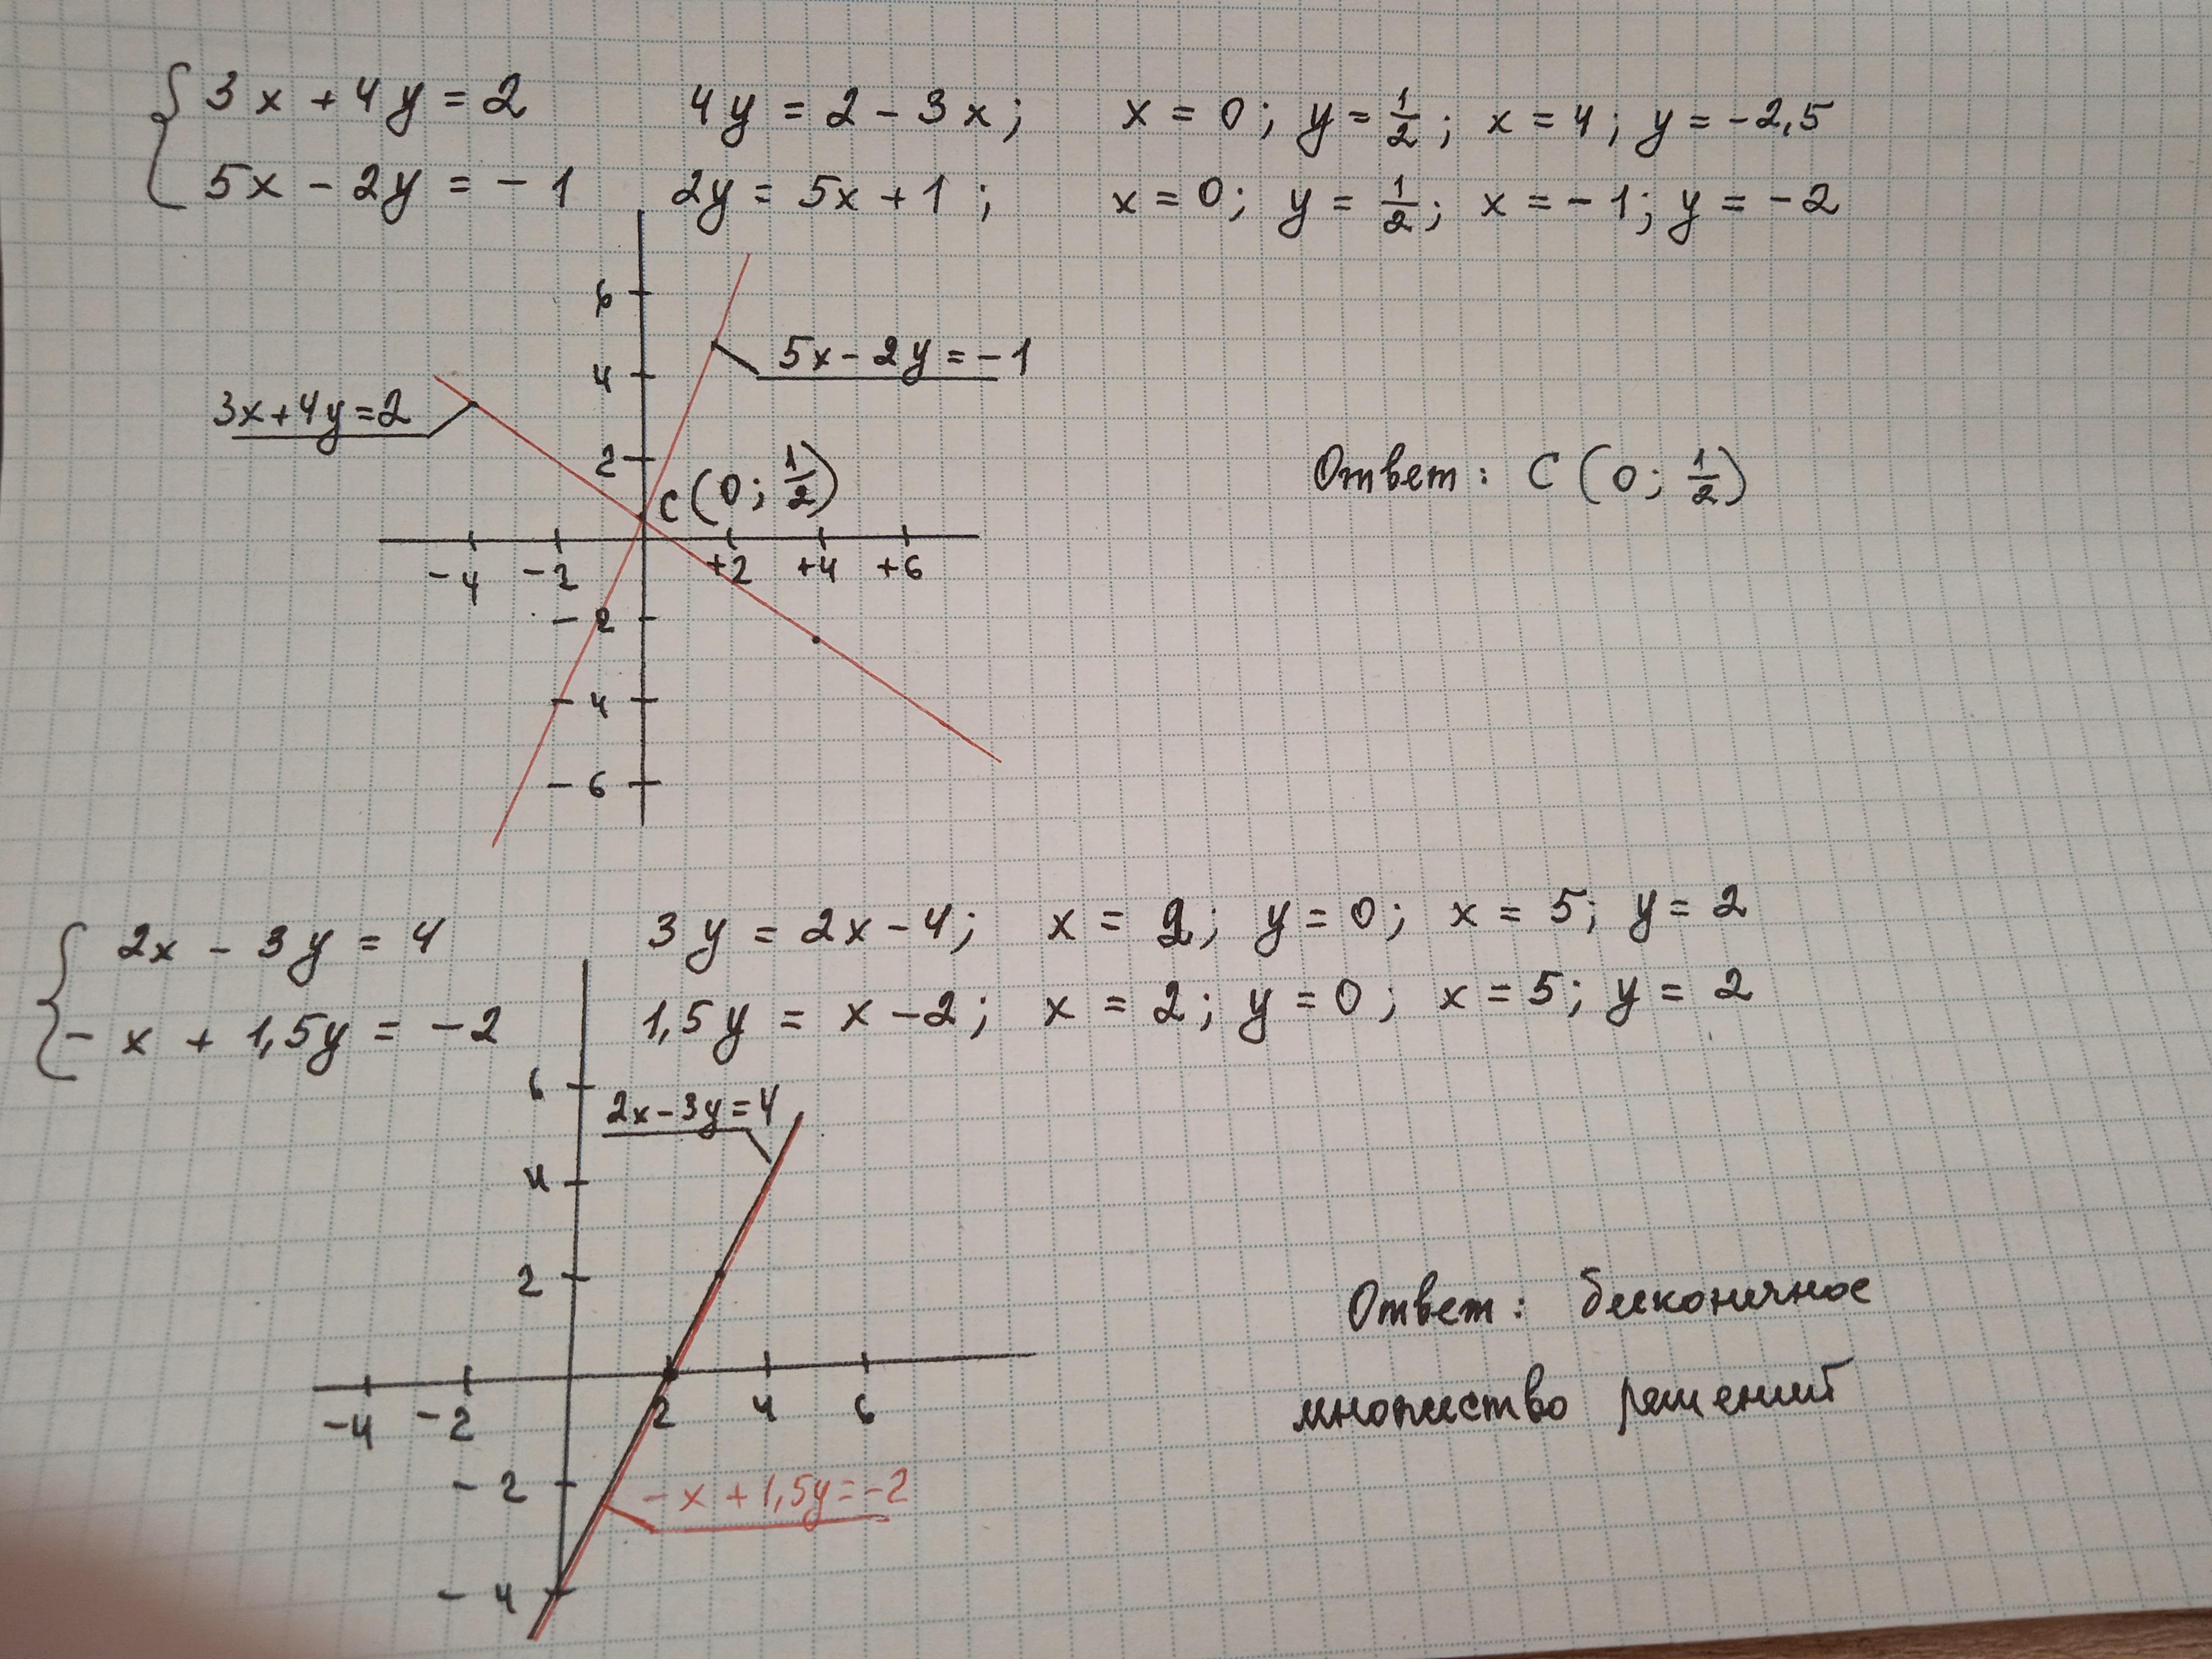 3x + 4y = 2 4y = 2 - 3x; x = 0; y = 1/2; x = 4; y = -2,5
5x - 2y = -1 2y = 5x + 1; x = 0; y = 1/2; x = -1; y = -2
6
5x - 2y = -1
4
3x + 4y = 2
2
C (0; 1/2)
Ответ: C (0; 1/2)
-4 -2 +2 +4 +6
-2
-4
-6
2x - 3y = 4 3y = 2x - 4; x = 2; y = 0; x = 5; y = 2
-x + 1,5y = -2 1,5y = x - 2; x = 2; y = 0; x = 5; y = 2
6
2x - 3y = 4
4
2
Ответ: бесконечное
множество решений
-4 -2 2 4 6
-2
-x + 1,5y = -2
-4